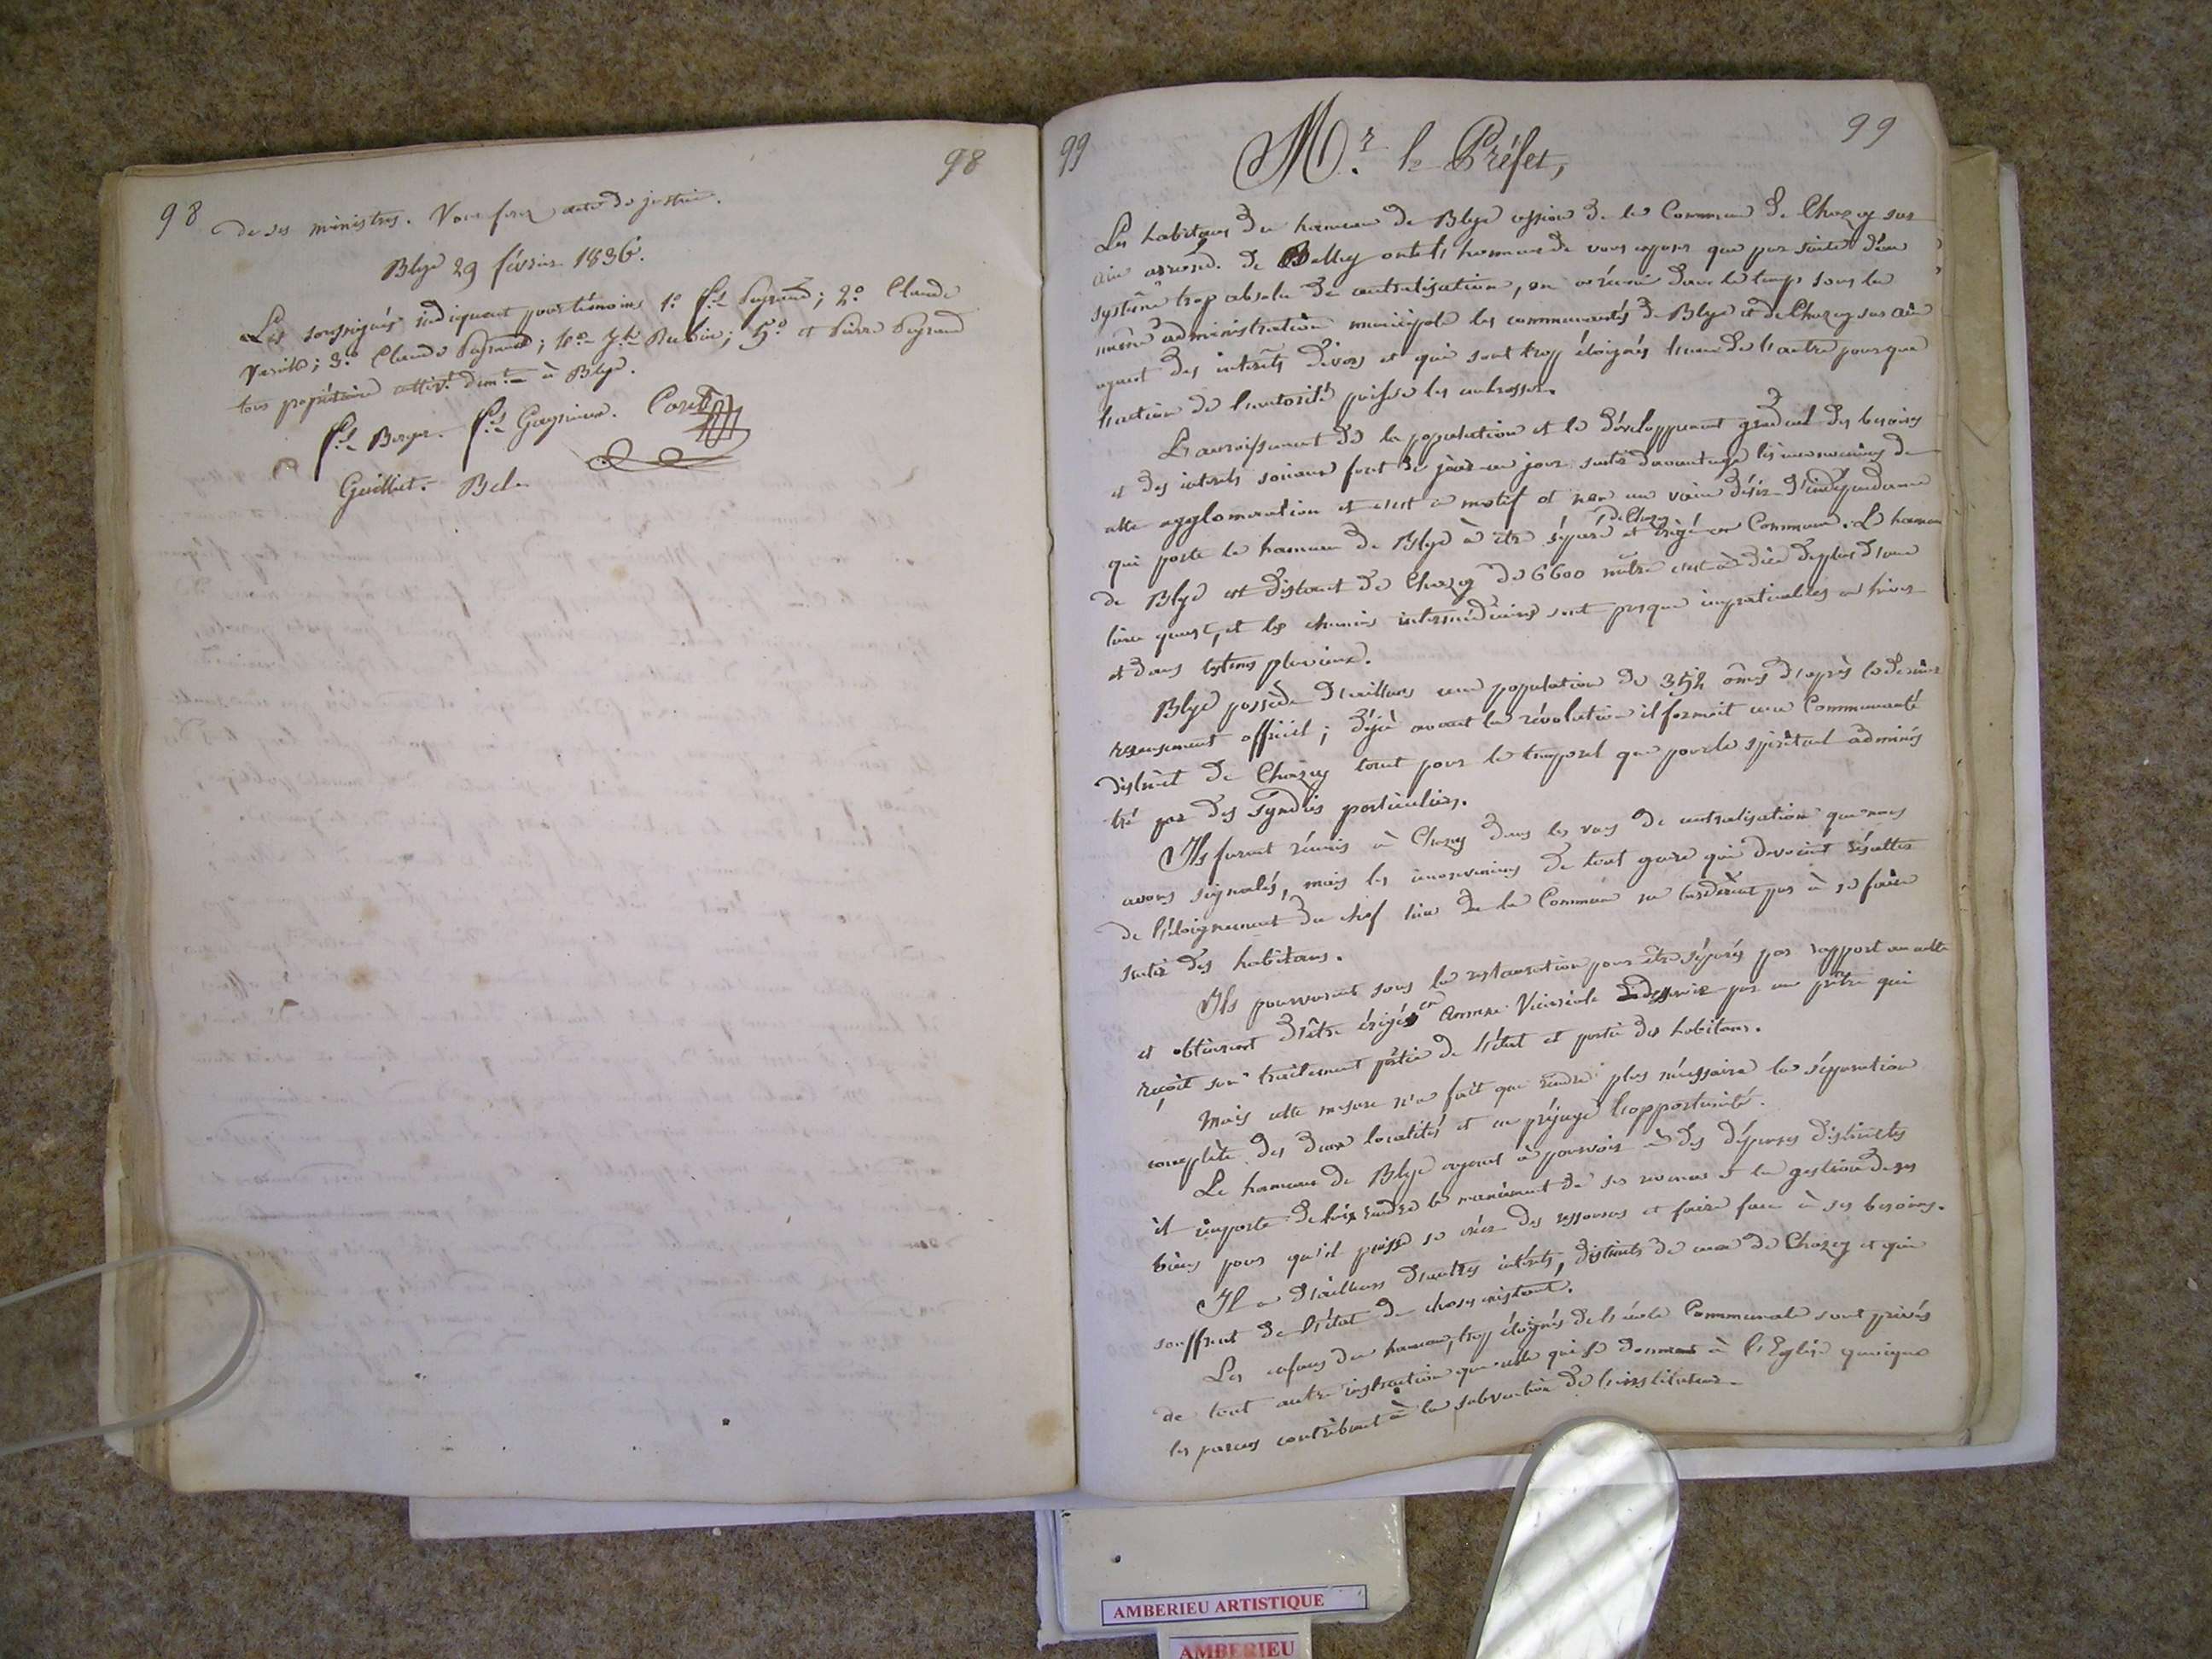 98
98
de ses ministres. Vous ferez acte de justice.
Blye 29 février 1836.
Les soussignés indiquent pour témoins 1º fs. Peysand; 2º Claude
; 3º Claude Peysand; 4º Jh. Rubin; 5º et Pierre Peysand
tous propriétaires cultivt. demt. à Blye.
fs. Berger. fs. Caret
Guilliet. Bel.
99
99
Mr. le Préfet,
Les habitans du hameau de Blye de la Commune de Chazey sur
ain arrond. de Belley ont l'honneur de vous exposer que par suite d'un
système trop absolu de centralisation, on a réuni dans le temps sous la
même administration municipale les communautés de Blye et de Chazey sur ain
ayant des intérêts divers et qui sont trop éloignés l'une de l'autre pour que
l'action de l'autorité puisse les embrasser.
L'accroissement de la population et le développement graduel des besoins
et des interets sociaux font de jour en jour sentir davantage les inconveniens de
cette agglomeration et c'est ce motif et non un vain désir d'indépendance
qui porte le hameau de Blye à être séparé de Chazey et érigé en Commune. Le hameau
de Blye est distant de Chazey de 6600 mètres c'est à dire de plus d'une
lieue quart, et les chemins intermédiaires sont presque impraticables en hiver
et dans les tems pluvieux.
Blye possède d'ailleurs une population de 352 âmes d'après le dernier
recensement officiel; déjà avant la révolution il formait une Communauté
distincte de Chazey tant pour le temporel que pour le spirituel adminis
tré par des syndics particuliers.
Ils furent réunis à Chazey dans les vues de centralisation que nous
avons signalés, mais les inconveniens de tout genre qui devoient résulter
de l'éloignement du chef lieu de la Commune ne tardèrent pas à se faire
sentir des habitans.
Ils pourvurent sous la restauration pour être séparés par rapport au culte
et obtinrent d'être érigés en Annexe Vicariale desservie par un prêtre qui
reçoit son traitement partie de l'état et partie des habitans.
Mais cette mesure n'a fait que rendre plus nécessaire la séparation
complète des deux localités et en préjuge l'opportunité.
Le hameau de Blye ayant à pourvoir à des dépenses distinctes
il importe de lui rendre le maniment de ses revenus et la gestion de ses
biens pour qu'il puisse se créer des ressources et faire face à ses besoins.
Il a d'ailleurs d'autres intérets, distincts de ceux de Chazey et qui
souffrent de l'état de choses existant.
Les enfans du hameau, trop éloignés de l'école Communale sont privés
de tout autre instruction que celle qui se donne à l'Eglise quoique
les parens contribuent à la subvention de l'instituteur.
AMBERIEU ARTISTIQUE
AMBERIEU